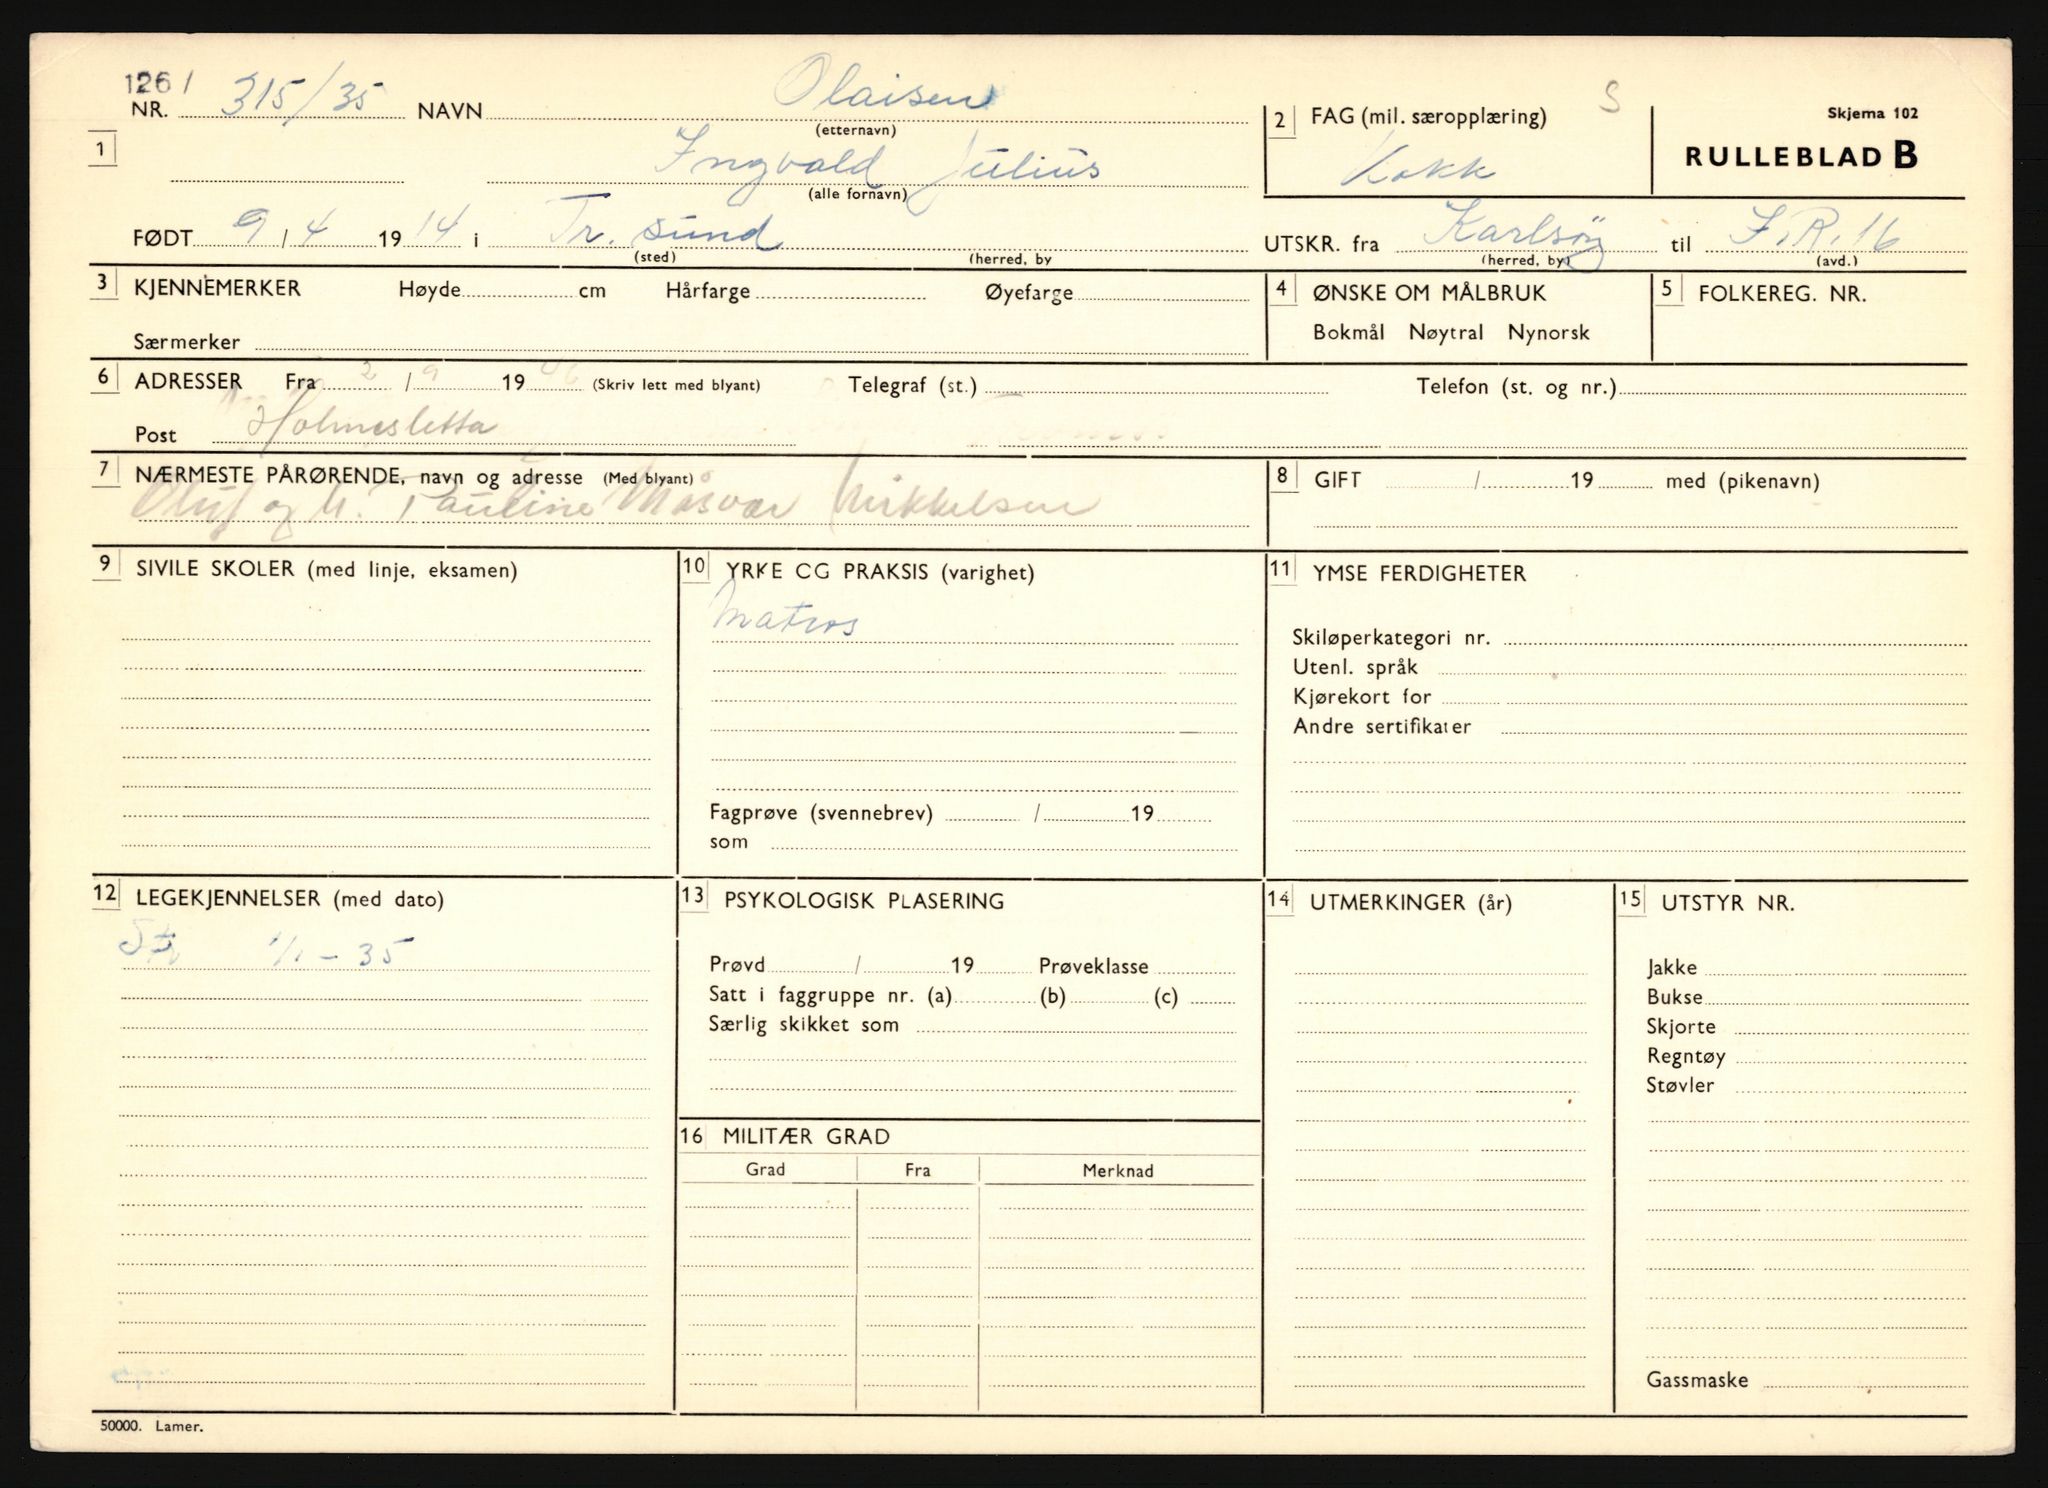 1261
NR. 315/35 NAVN Olaisen
(etternavn)
1 Ingvald Julius
(alle fornavn)
2 FAG (mil. særopplæring) S
Kokk
Skjema 102
RULLEBLAD B
FØDT 9/4 1914 i Tr. sund
(sted) (herred, by
UTSKR. fra Karlsøy til I.R. 16
(herred, by) (avd.)
3 KJENNEMERKER Høyde cm Hårfarge Øyefarge
Særmerker
4 ØNSKE OM MÅLBRUK
Bokmål Nøytral Nynorsk
5 FOLKEREG. NR.
6 ADRESSER Fra 2/9 1946 (Skriv lett med blyant) Telegraf (st.) Telefon (st. og nr.)
Post Holmesletta
7 NÆRMESTE PÅRØRENDE, navn og adresse (Med blyant)
Oluf og Pauline Måsvær Mikkelsen
8 GIFT / 19 med (pikenavn)
9 SIVILE SKOLER (med linje, eksamen)
10 YRKE CG PRAKSIS (varighet)
Matros
Fagprøve (svennebrev) / 19
som
11 YMSE FERDIGHETER
Skiløperkategori nr.
Utenl. språk
Kjørekort for
Andre sertifikater
12 LEGEKJENNELSER (med dato)
Str 1/1 - 35
13 PSYKOLOGISK PLASERING
Prøvd / 19 Prøveklasse
Satt i faggruppe nr. (a) (b) (c)
Særlig skikket som
14 UTMERKINGER (år)
15 UTSTYR NR.
Jakke
Bukse
Skjorte
Regntøy
Støvler
Gassmaske
16 MILITÆR GRAD
Grad Fra Merknad
50000. Lamer.